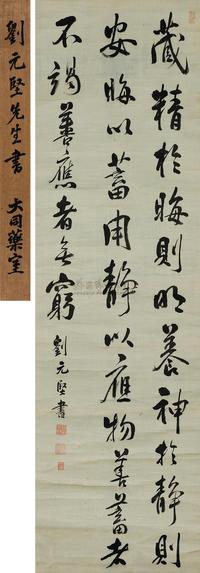 藏精於晦則明養神於靜則
安晦以蓄用靜以應物善蓄者
不竭善應者無窮
劉元堅書
劉元堅先生書 大同藥室